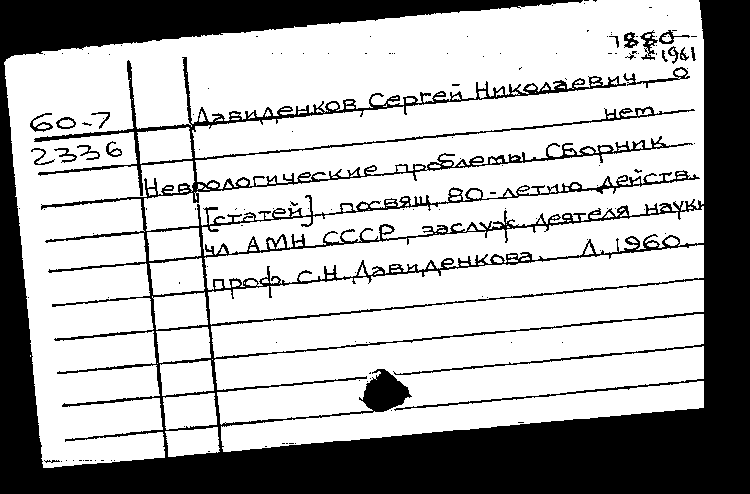 1880-
1961
60-7 Давиденков, Сергей Николаевич, о
2336 нем.
Неврологические проблемы. Сборник
[статей], посвящ. 80-летию действ.
чл. АМН СССР, заслуж. деятеля науки
проф. С.Н. Давиденкова. Л., 1960.